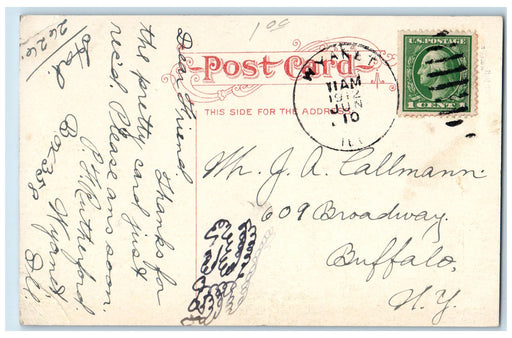 2626
1.00
Post Card
THIS SIDE FOR THE ADDRESS
WYANET
11 AM
1912
JUN
10
ILL
U.S. POSTAGE
1 CENT 1
Mr. J. A. Callmann.
609 Broadway.
Buffalo,
N.Y.
Dear Friend.
Thanks for
the pretty card just
rec'd. Please ans soon.
P. H. Rutherford
Box 38 Wyanet
Ill.